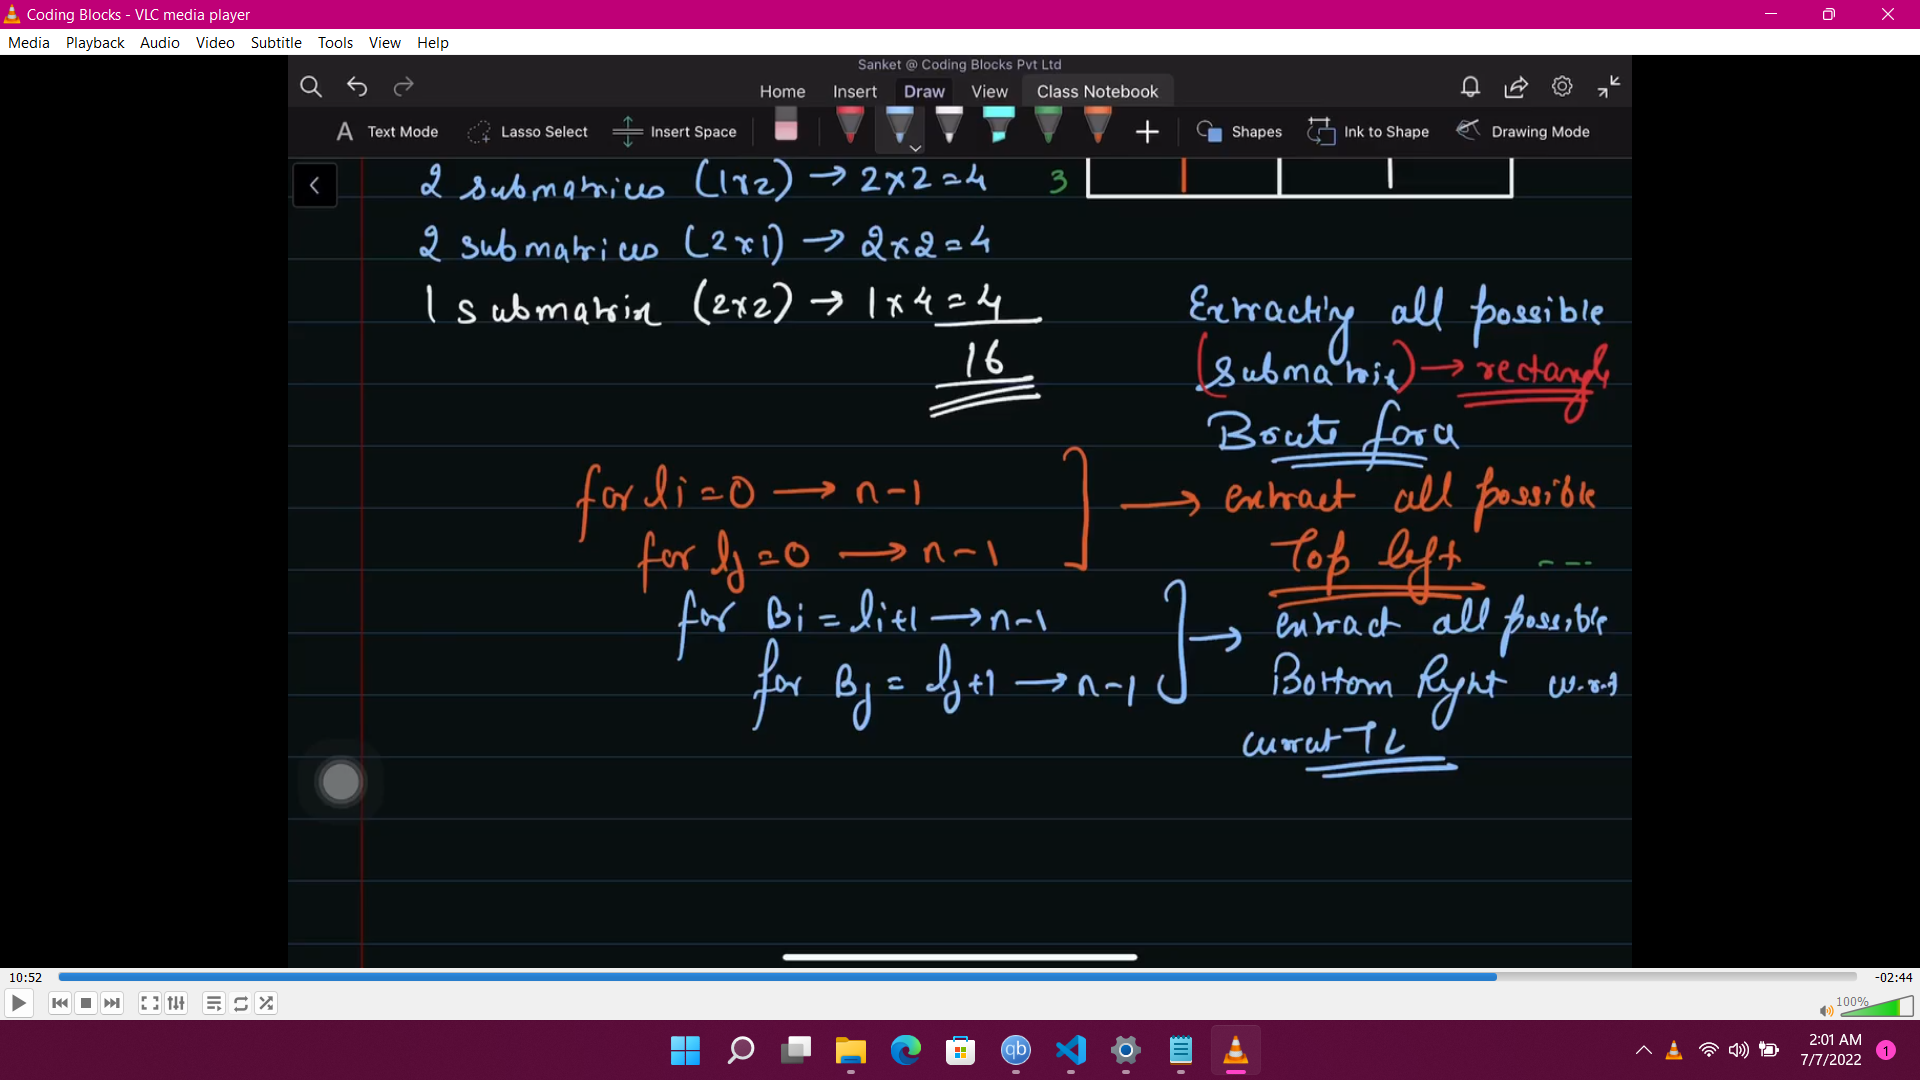 Coding Blocks - VLC media player
Media Playback Audio Video Subtitle Tools View Help
Sanket @ Coding Blocks Pvt Ltd
Home Insert Draw View Class Notebook
A Text Mode Lasso Select Insert Space Shapes Ink to Shape Drawing Mode
2 submatrices (1x2) → 2x2=4 3
2 submatrices (2x1) → 2x2=4
1 submatrix (2x2) → 1x4=4
16
Extracting all possible
(submatrix) → rectangle
Brute force
for li=0 → n-1
for lj=0 → n-1
extract all possible
Top left
for Bi = li+1 → n-1
for Bj = lj+1 → n-1
extract all possible
Bottom Right w.r.t
current TL
10:52 -02:44
100%
qb
2:01 AM
7/7/2022 1